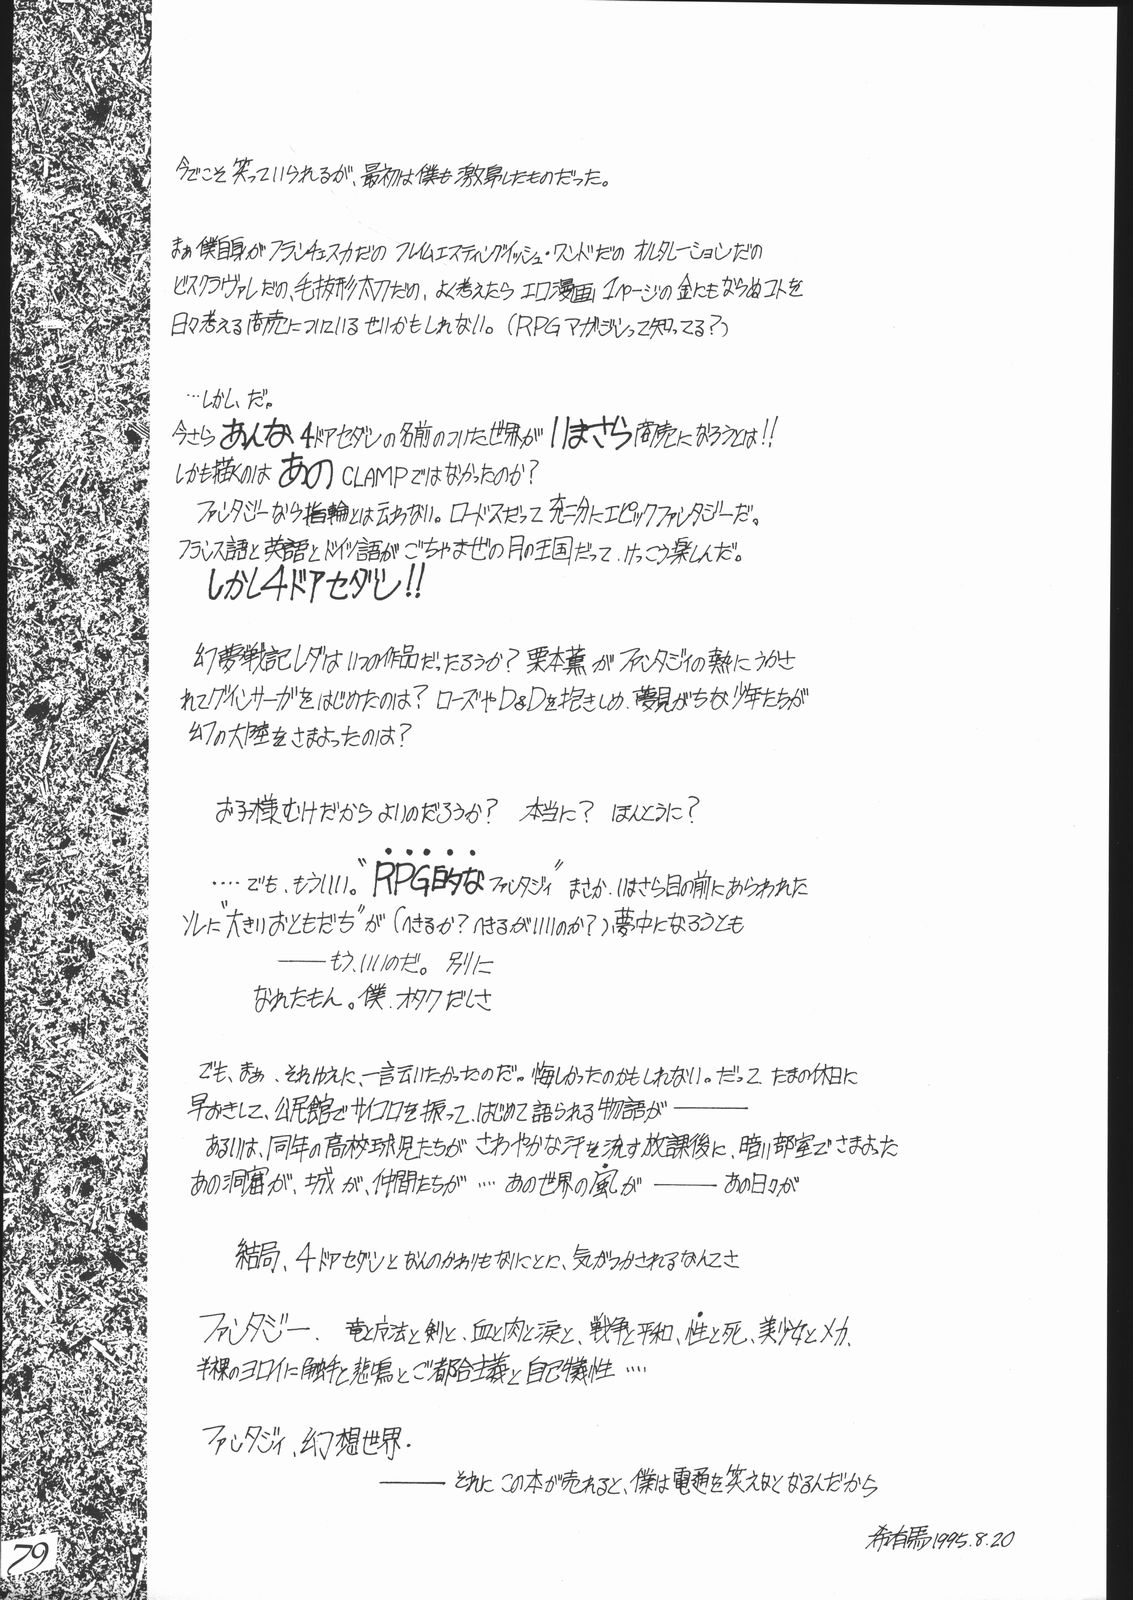 今でこそ笑っていられるが、最初は僕も激昂したものだった。
まぁ僕自身がフランチェスカだの フレイムエスティングイッシュ・ワンドだの オルタレーションだの
ビスクラヴァレだの、毛抜形太刀だの、よく考えたら エロ漫画 1ページの金にもならぬコトを
日々考える商売についているせいかもしれない。(RPGマガジンって知ってる?)
…しかし、だ。
今さら あんな 4ドアセダンの名前のついた世界が いまさら 商売になろうとは!!
しかも描くのは あの CLAMPではなかったのか?
ファンタジーなら指輪とは云わない。ロードスだって充二分にエピックファンタジーだ。
フランス語と英語とドイツ語がごちゃまぜの月の王国だって、けっこう楽しんだ。
しかし4ドアセダン!!
幻夢戦記レダはいつの作品だったろうか? 栗本薫がファンタジィの熱にうかさ
れてグインサーガをはじめたのは? ローズやD&Dを抱きしめ、夢見がちな少年たちが
幻の大陸をさまよったのは?
お子様むけだからよいのだろうか? 本当に? ほんとうに?
‥‥でも、もういい。“RPG的なファンタジィ”まさか、いまさら目の前にあらわれた
ソレに“大きいおともだち”が(へきるか?へきるがいいのか?)夢中になろうとも
――もう、いいのだ。別に
なれたもん。僕、オタクだしさ
でも、まぁ、それゆえに、一言云いたかったのだ。悔しかったのかもしれない。だって、たまの休日に
早おきして、公民館でサイコロを振って、はじめて語られる物語が――
あるいは、同年の高校球児たちが さわやかな汗を流す放課後に、暗い部室でさまよった
あの洞窟が、城が、仲間たちが‥‥あの世界の風が――あの日々が
結局、4ドアセダンとなんのかわりもないことに、気がつかされるなんてさ
ファンタジー、竜と魔法と剣と、血と肉と涙と、戦争と平和、性と死、美少女とメカ、
半裸のヨロイに触手と悲鳴とご都合主義と自己犠牲‥‥
ファンタジィ、幻想世界.
――それに この本が売れると、僕は電通を笑えなくなるんだから
希有馬1995.8.20
79